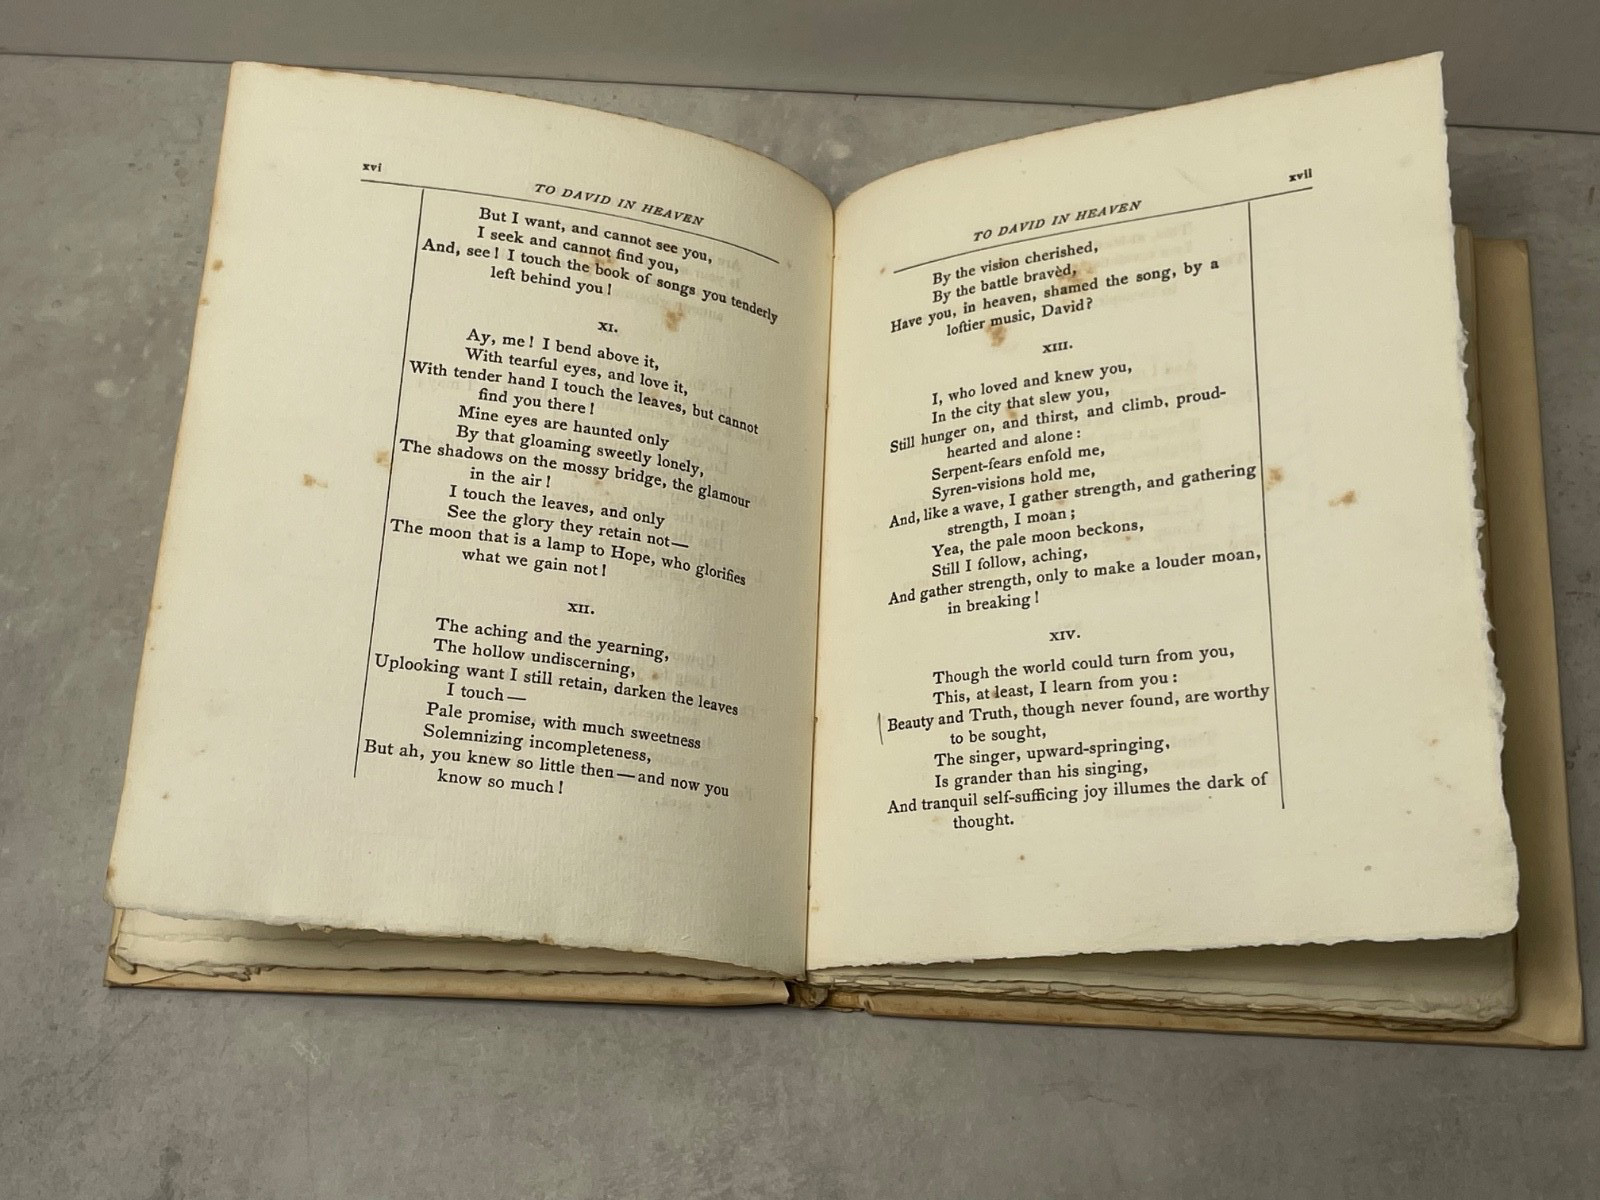 xvi
TO DAVID IN HEAVEN
But I want, and cannot see you,
I seek and cannot find you,
And, see! I touch the book of songs you tenderly
left behind you!
XI.
Ay, me! I bend above it,
With tearful eyes, and love it,
With tender hand I touch the leaves, but cannot
find you there!
Mine eyes are haunted only
By that gloaming sweetly lonely,
The shadows on the mossy bridge, the glamour
in the air!
I touch the leaves, and only
See the glory they retain not—
The moon that is a lamp to Hope, who glorifies
what we gain not!
XII.
The aching and the yearning,
The hollow undiscerning,
Uplooking want I still retain, darken the leaves
I touch—
Pale promise, with much sweetness
Solemnizing incompleteness,
But ah, you knew so little then—and now you
know so much!
xvii
TO DAVID IN HEAVEN
By the vision cherished,
By the battle bravèd,
Have you, in heaven, shamed the song, by a
loftier music, David?
XIII.
I, who loved and knew you,
In the city that slew you,
Still hunger on, and thirst, and climb, proud-
hearted and alone:
Serpent-fears enfold me,
Syren-visions hold me,
And, like a wave, I gather strength, and gathering
strength, I moan;
Yea, the pale moon beckons,
Still I follow, aching,
And gather strength, only to make a louder moan,
in breaking!
XIV.
Though the world could turn from you,
This, at least, I learn from you:
Beauty and Truth, though never found, are worthy
to be sought,
The singer, upward-springing,
Is grander than his singing,
And tranquil self-sufficing joy illumes the dark of
thought.